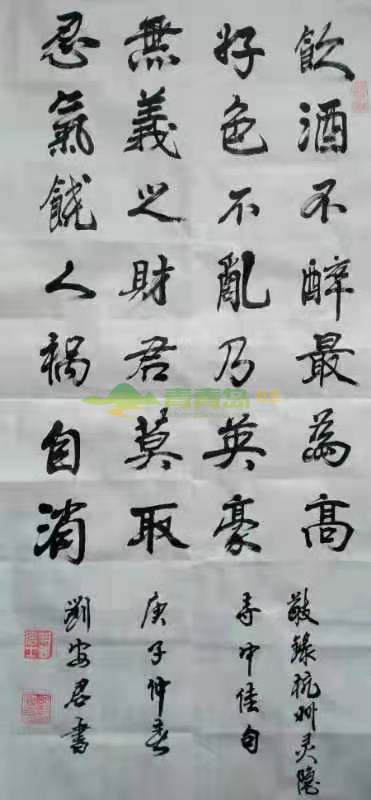 飲酒不醉最為高
好色不亂乃英豪
無義之財君莫取
忍氣饒人禍自消
敬錄杭州灵隐
寺中佳句
庚子仲春
劉安君書
青青岛